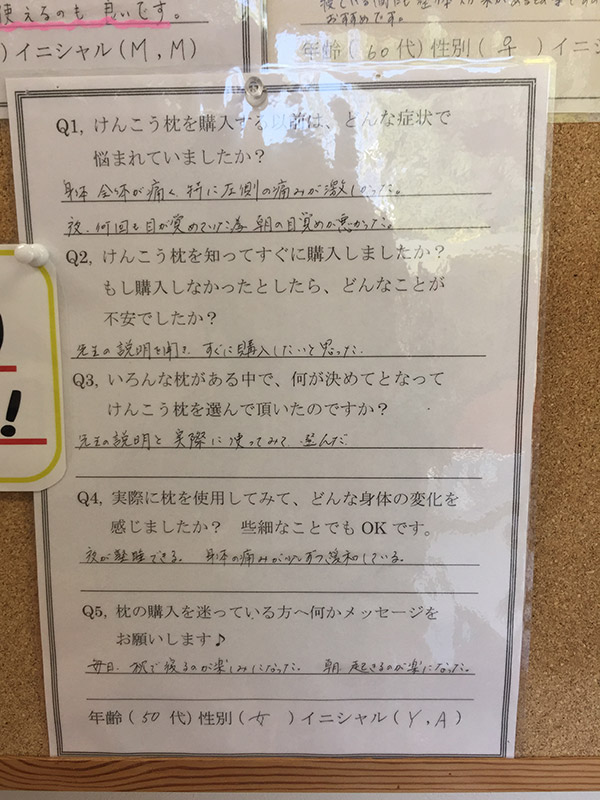 使えるのも良いです。
)イニシャル(M,M)
おすすめです。
年齢(60代)性別(女)イニ
Q1, けんこう枕を購入する以前は、どんな症状で
悩まれていましたか？
身体全体が痛く、特に左側の痛みが激しかった。
夜、何回も目が覚めていた為、朝の目覚めが悪かった。
Q2, けんこう枕を知ってすぐに購入しましたか？
もし購入しなかったとしたら、どんなことが
不安でしたか？
先生の説明を聞き、すぐに購入したいと思った。
Q3, いろんな枕がある中で、何が決めてとなって
けんこう枕を選んで頂いたのですか？
先生の説明と実際に使ってみて、選んだ
Q4, 実際に枕を使用してみて、どんな身体の変化を
感じましたか？　些細なことでもOKです。
夜が熟睡できる。　身体の痛みが少しずつ緩和している。
Q5, 枕の購入を迷っている方へ何かメッセージを
お願いします♪
毎日、枕で寝るのが楽しみになった。　朝、起きるのが楽になった。
年齢(50代)性別(女)イニシャル(Y,A)
!